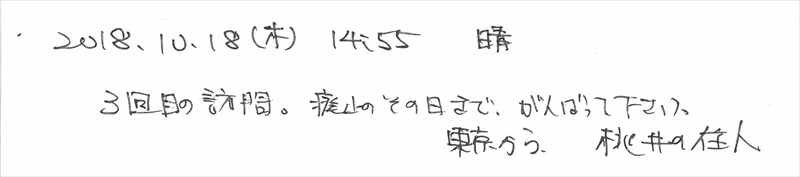 ・2018.10.18(木) 14:55 晴
3回目の訪問。廃止のその日まで、がんばって下さい。
東京から、桃井の住人